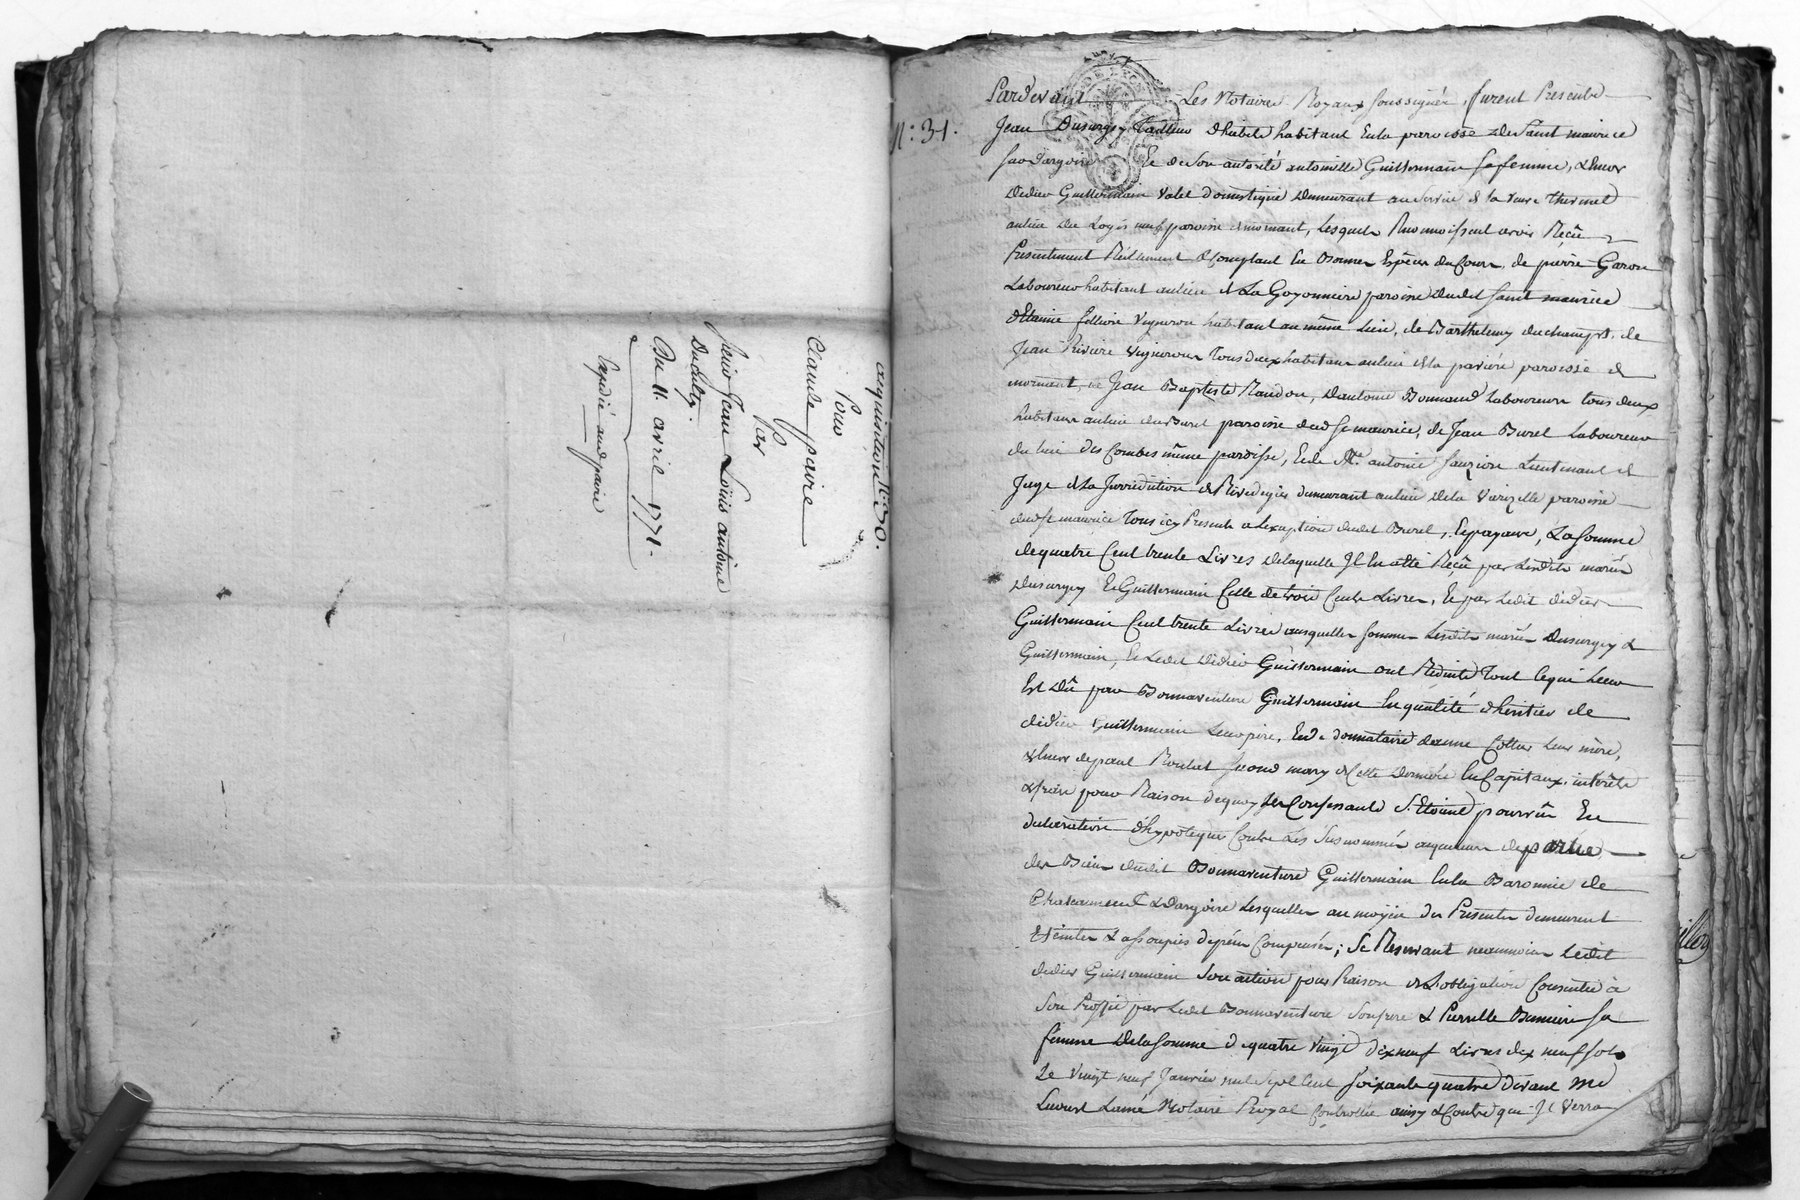 acquisition N.° 30.
Pour
Claude paire
Par
Jean Louis antoine
Du 11. avril 1771.
Expedié aud paire
N.° 31.
Pardevant Les Notaires Royaux soussignés, furent Presents
Jean Dusurgey Tailleur d'habits habitant en la paroisse de Saint maurice
sur dargoire Et de son autorité antoinette Guillermain sa femme, &
Didier Guillermain valet domestique demeurant au service de la veuve Thevenet
au lieu du Logis neuf paroisse de mornant, lesquels Reconnoissent avoir Reçû
Presentement Réellement & Comptant En Bonnes Espèces du Cours, de pierre Garon
Laboureur habitant au lieu de La Goyonniere paroisse dudit saint maurice
d'Etienne Vigneron habitant au même lieu, de Barthelemy duchamps, de
Jean Riviere vigneron tous deux habitans au lieu de la paroisse de
mornant, de Jean Baptiste Randon, d'antoine Bonnand Laboureurs tous deux
habitans au lieu du Burel paroisse dud St maurice, de Jean Burel Laboureur
du lieu des Combes même paroisse, Et de Me. antoine Lieutenant de
Juge de la Jurisdiction de Rivedegier demeurant au lieu de la Varizelle paroisse
dud St maurice Tous icy Presents a l'exeption dudit Burel, Et payant, La somme
de quatre Cent trente Livres de laquelle Il En a été Reçû par Lesdits mariés
Dusurgey Et Guillermain Celle de trois Cents Livres, Et par Ledit didier
Guillermain Cent trente Livres ausquelles sommes Lesdits mariés Dusurgey &
Guillermain, Et Ledit Didier Guillermain ont Réduits Tout ce qui Leur
Est Dû par Bonnaventure Guillermain En qualité d'heritier de
didier Guillermain Leur père, Et de donnataire Leur mère,
de paul second mary de Cette Derniere En Capitaux, intérêts
& frais pour Raison de quoy Les Confessants S'etoient pourvûs En
declaration d'hypoteque Contre Les Susnommés acquereurs de partie
des Biens dudit Bonnaventure Guillermain En la Baronnie de
Chateauneuf & Dargoire Lesquelles au moyen des Presentes demeurent
Eteintes & assoupies depens Compensés; Se Reservant neanmoins Ledit
didier Guillermain Son action pour Raison de L'obligation Consentie à
Son Proffit par Ledit Bonnaventure Son frere & Pierrette sa
femme De la somme de quatre vingt dix neuf Livres dix neuf sols
Le vingt neuf Janvier mil Sept Cent Soixante quatre devant Me
L'ainé Notaire Royal Controllée ainsy & Contre qui Il Verra